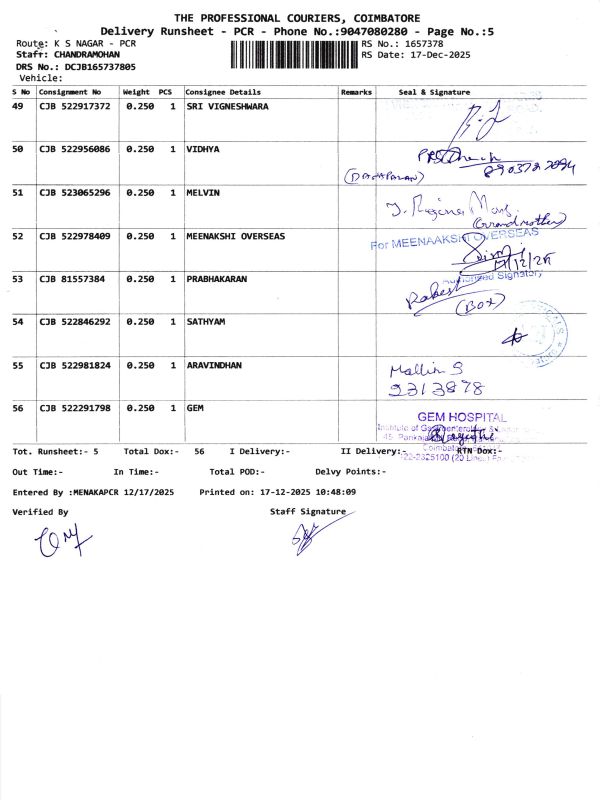 THE PROFESSIONAL COURIERS, COIMBATORE
Delivery Runsheet - PCR - Phone No.:9047080280 - Page No.:5
Route: K S NAGAR - PCR RS No.: 1657378
Staff: CHANDRAMOHAN RS Date: 17-Dec-2025
DRS No.: DCJB165737805
Vehicle:
S No Consignment No Weight PCS Consignee Details Remarks Seal & Signature
49 CJB 522917372 0.250 1 SRI VIGNESHWARA
50 CJB 522956086 0.250 1 VIDHYA
51 CJB 523065296 0.250 1 MELVIN
(Grandmother)
52 CJB 522978409 0.250 1 MEENAKSHI OVERSEAS For MEENAAKSHI OVERSEAS
Authorised Signatory
53 CJB 81557384 0.250 1 PRABHAKARAN Rakesh
(BOX)
54 CJB 522846292 0.250 1 SATHYAM
55 CJB 522981824 0.250 1 ARAVINDHAN
2313878
56 CJB 522291798 0.250 1 GEM GEM HOSPITAL
Institute of
Tot. Runsheet:- 5 Total Dox:- 56 I Delivery:- II Delivery:- RTN Dox:-
Out Time:- In Time:- Total POD:- Delvy Points:-
Entered By :MENAKAPCR 12/17/2025 Printed on: 17-12-2025 10:48:09
Verified By Staff Signature